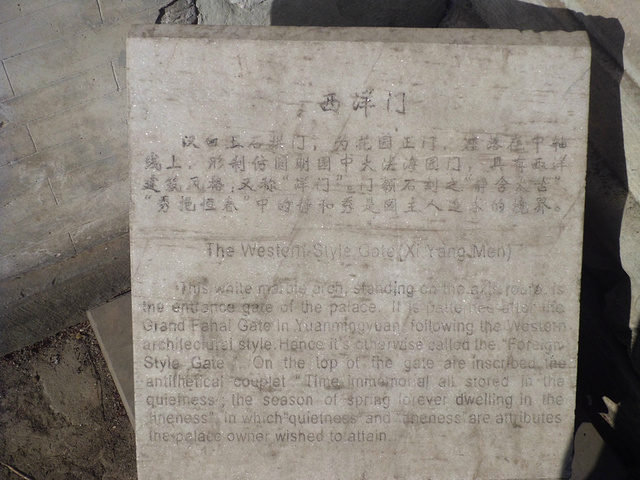 西洋门
汉白玉石拱门，为花园正门，坐落在中轴
线上，形制仿圆明园中大法海园门，具有西洋
建筑风格，又称“洋门”。门额石刻之“静含太古”
“秀挹恒春”中的静和秀是园主人追求的境界。
The Western-Style Gate (Xi Yang Men)
This white marble arch, standing on the axis route, is
the entrance gate of the palace. It is patterned after the
Grand Fahai Gate in Yuanmingyuan, following the Western
architectural style. Hence it's otherwise called the "Foreign
Style Gate". On the top of the gate are inscribed the
antithetical couplet "Time immemorial all stored in the
quietness; the season of spring forever dwelling in the
fineness" in which "quietness" and "fineness" are attributes
the palace owner wished to attain.